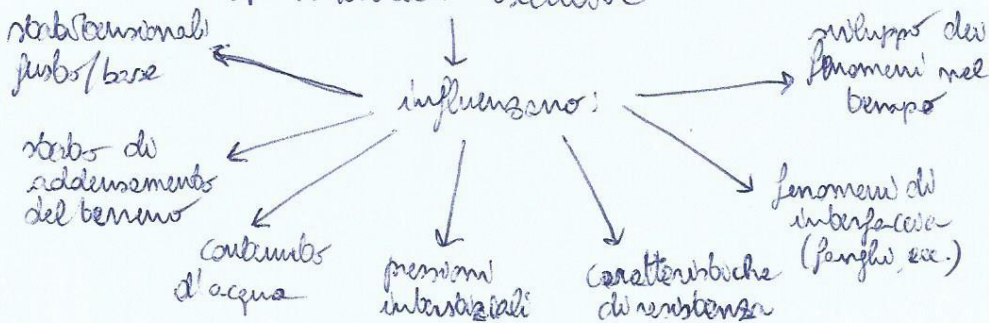 stati tensionali
fusto/base
influenzano:
sviluppo dei
fenomeni nel
tempo
stato di
addensamento
del terreno
contenuto
d'acqua
pressioni
interstiziali
caratteristiche
di resistenza
fenomeni di
interfaccia
(fanghi, ecc.)